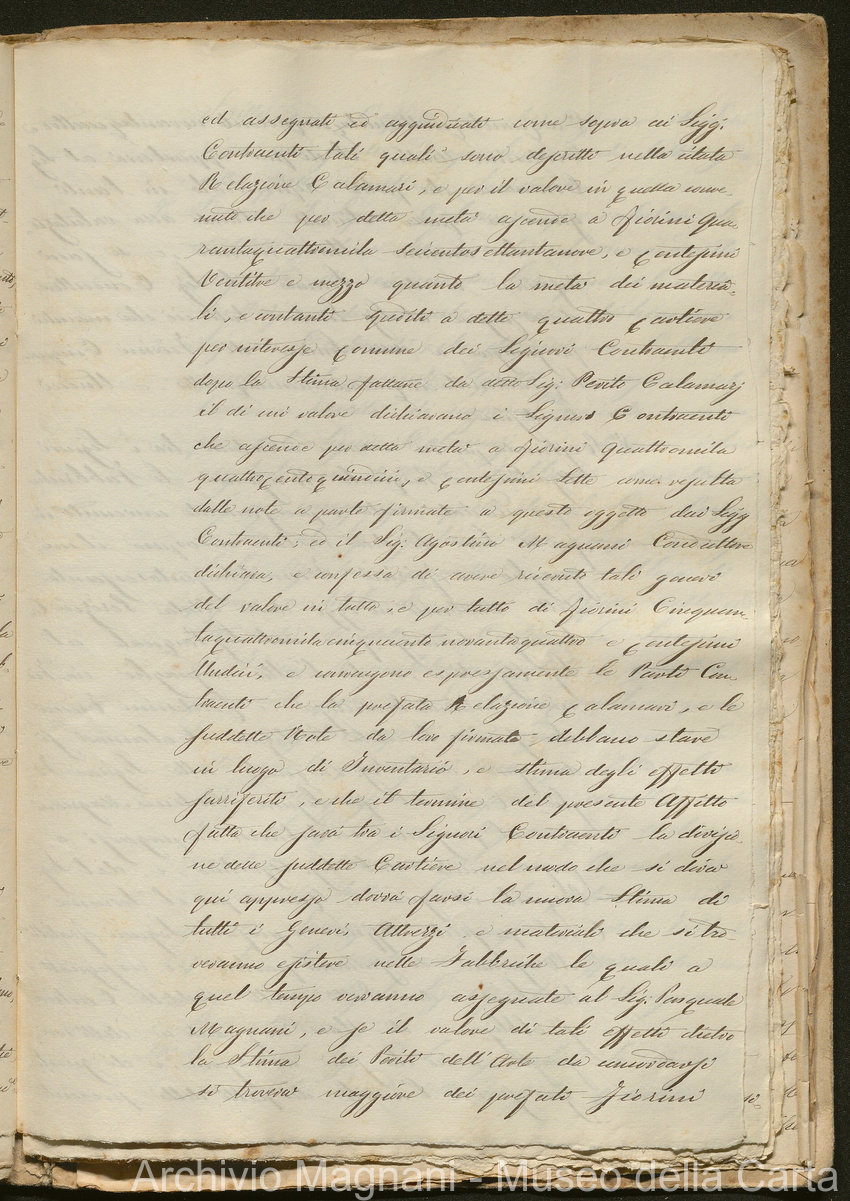 ed assegnati ed aggiudicati come sopra ai Sigg:
Contraenti tali quali sono descritti nella citata
Relazione Calamari, e per il valore in questa conve-
nuto che per detta metà ascende a fiorini Qua-
rantaquattromila seicentosettantanove, e centesimi
Ventitre e mezzo quanto la metà dei materia-
li, e contanti spediti a dette quattro Cartiere
per interesse Comune dei Signori Contraenti
dopo la Stima fattane da detto Sig: Perito Calamarj
il di cui valore dichiarano i Signori Contraenti
che ascende per detta metà a fiorini quattromila
quattrocentoquindici, e centesimi Sette come resulta
dalle note a parte firmate a questo oggetto dai Sigg
Contraenti, ed il Sig: Agostino Magnani Conduttore
dichiara, e confessa di avere ricevuto tali generi
del valore in tutto, e per tutto di fiorini Cinquan-
taquattromilacinquecento novantaquattro e Centesimi
Undici, e convengono espressamente le Parti Con-
traenti che la prefata Relazione Calamari, e le
suddette Note da loro firmate debbano stare
in luogo di Inventario, e stima degli effetti
surriferiti, e che il termine del presente Affitto
fatta che sarà tra i Signori Contraenti la divisio-
ne delle suddette Cartiere nel modo che si dirà
qui appresso dovrà farsi la nuova Stima di
tutti i Generi, Attrezzi e materiali che si tro-
veranno esistere nelle Fabbriche le quali a
quel tempo verranno assegnate al Sig: Pasquale
Magnani, e se il valore di tali effetti dietro
la Stima dei Periti dell'Arte da concordarsi
si troverà maggiore dei prefati Fiorini
Archivio Magnani - Museo della Carta